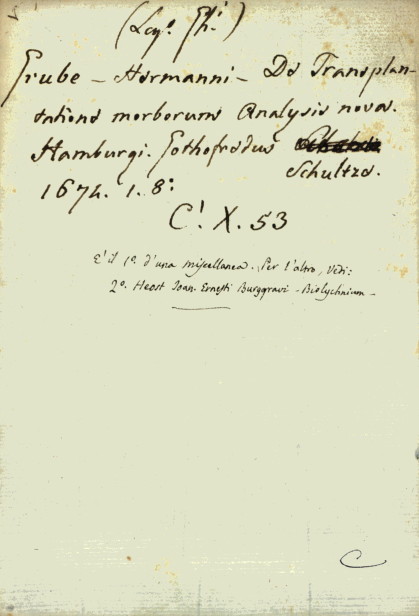 (Leg.º Ch.º)
Grube - Hermanni - De Transplan-
tatione morborum Analysis nova.
Hamburgi. Gothofredus
Schultze.
1674. 1. 8:
C! X. 53
E' il 1º d'una miscellanea. Per l'altro, Vedi:
2º. Heost Joan. Ernesti Burggravi - Biolychnium -
C